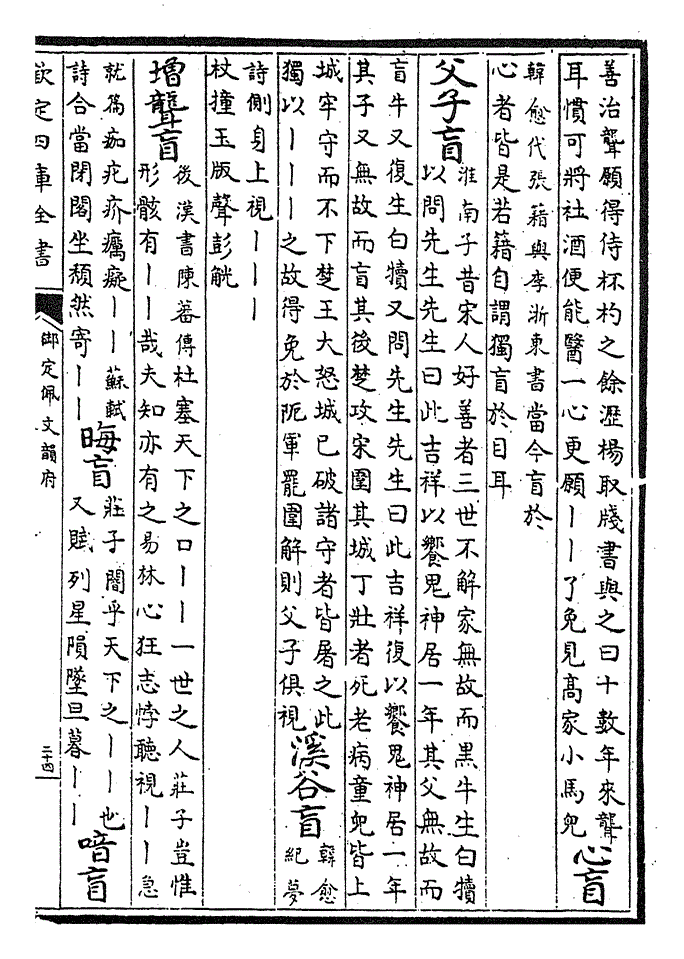 善治聾願得侍杯杓之餘瀝楊取牋書與之曰十數年來聾
耳慣可將社酒便能醫一心更願丨丨了免見高家小馬兒
心盲
韓愈代張籍與李浙東書當今盲於
心者皆是若籍自謂獨盲於目耳
父子盲
淮南子昔宋人好善者三世不解家無故而黑牛生白犢
以問先生先生曰此吉祥以饗鬼神居一年其父無故而
盲牛又復生白犢又問先生先生曰此吉祥復以饗鬼神居一年
其子又無故而盲其後楚攻宋圍其城丁壯者死老病童兒皆上
城牢守而不下楚王大怒城已破諸守者皆屠之此
獨以丨丨丨之故得免於阨軍罷圍解則父子俱視
溪谷盲
韓愈
紀夢
詩側身上視丨丨丨
杖撞玉版聲彭觥
增聾盲
後漢書陳蕃傳杜塞天下之口丨丨一世之人莊子豈惟
形骸有丨丨哉夫知亦有之易林心狂志悖聽視丨丨急
就篇痂疕疥癘癡丨丨蘇軾
詩合當閉閣坐頽然寄丨丨
晦盲
莊子闇乎天下之丨丨也
又賦列星隕墜旦暮丨丨
喑盲
欽定四庫全書
御定佩文韻府
二十四